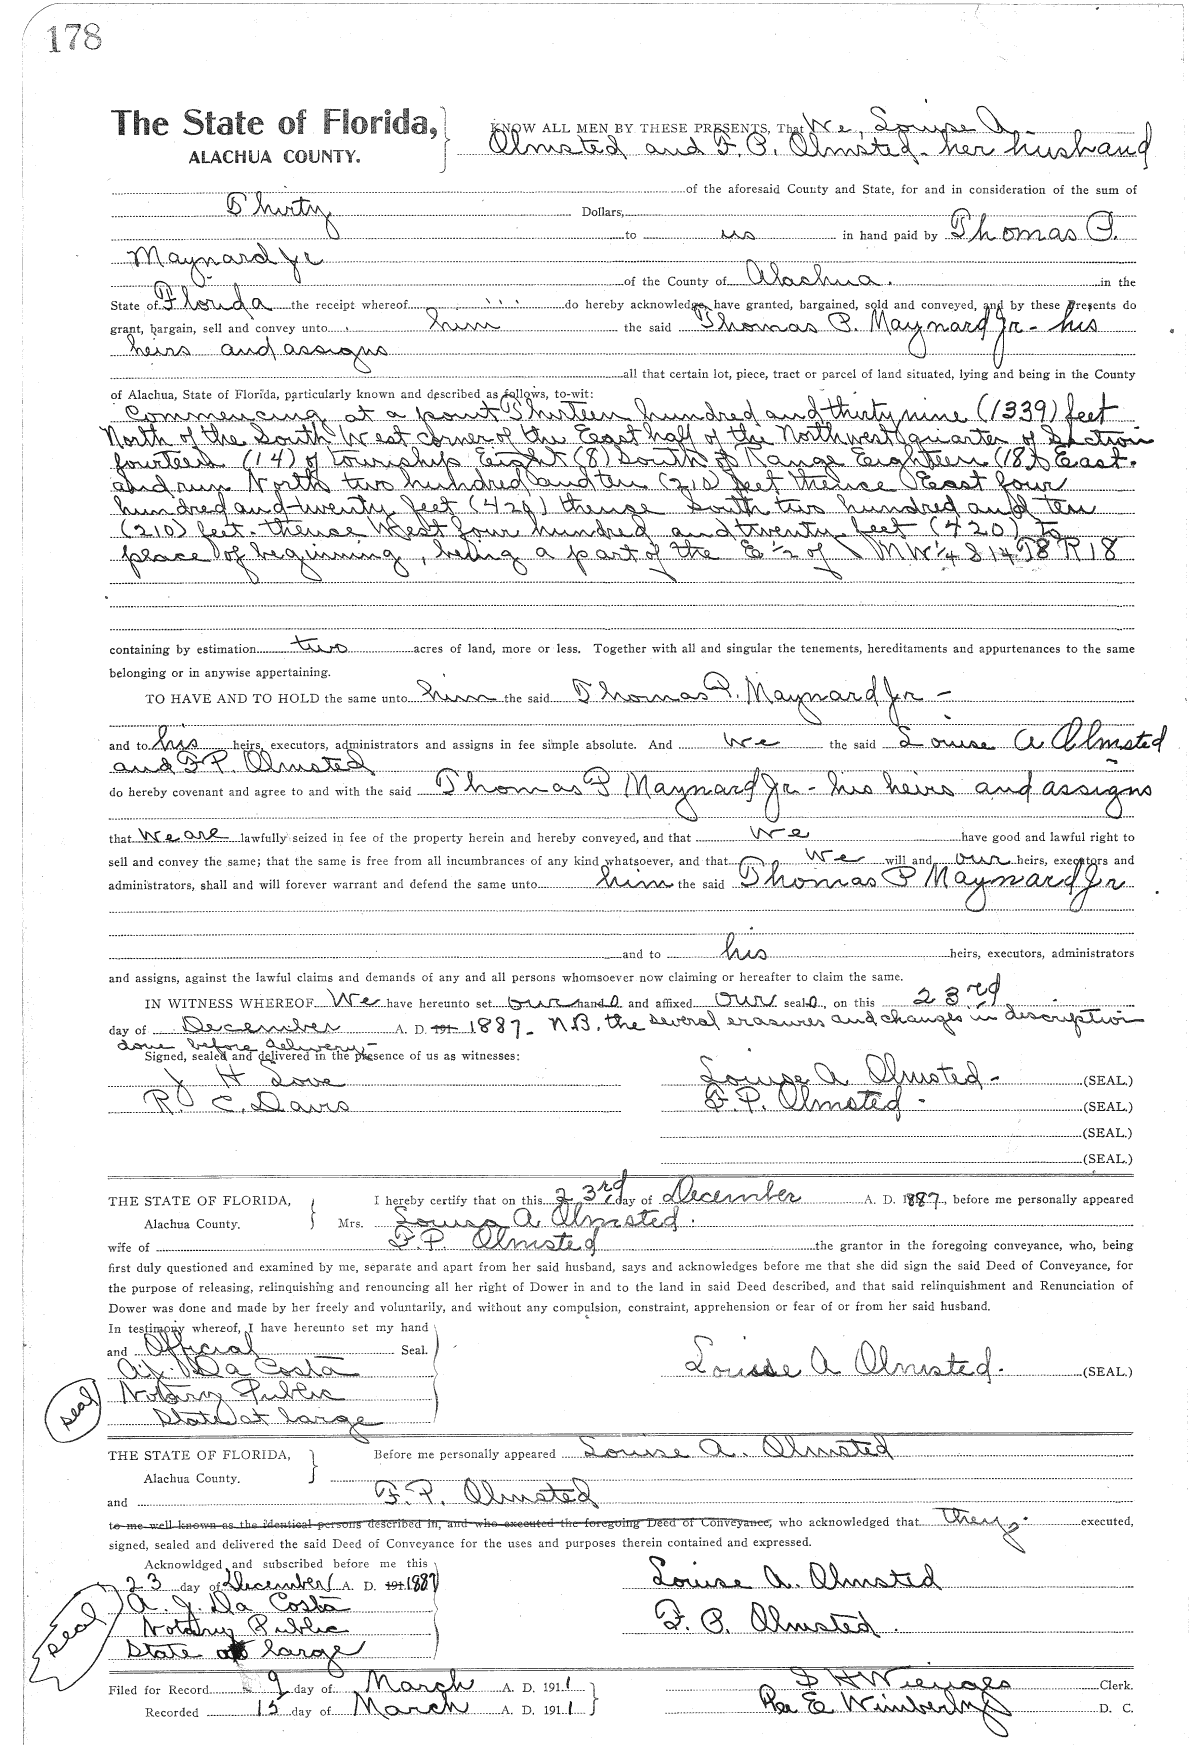 178
The State of Florida,
ALACHUA COUNTY.
KNOW ALL MEN BY THESE PRESENTS, That We, Louise A.
Olmsted and F. P. Olmsted - her husband
of the aforesaid County and State, for and in consideration of the sum of
Thirty Dollars,
to us in hand paid by Thomas P.
Maynard Jr
of the County of Alachua. in the
State of Florida the receipt whereof do hereby acknowledge, have granted, bargained, sold and conveyed, and by these Presents do
grant, bargain, sell and convey unto him the said Thomas P. Maynard Jr - his
heirs and assigns
all that certain lot, piece, tract or parcel of land situated, lying and being in the County
of Alachua, State of Florida, particularly known and described as follows, to-wit:
Commencing at a point Thirteen hundred and thirty nine (1339) feet
North of the South West corner of the East half of the Northwest quarter of Section
fourteen (14) of township Eight (8) South of Range Eighteen (18) East.
and run North two hundred and ten (210) feet thence East four
hundred and twenty feet (420) thence South two hundred and ten
(210) feet. thence West four hundred and twenty feet (420) to
place of beginning, being a part of the E 1/2 of NW 1/4 S 14 T8 R 18
containing by estimation two acres of land, more or less. Together with all and singular the tenements, hereditaments and appurtenances to the same
belonging or in anywise appertaining.
TO HAVE AND TO HOLD the same unto him the said Thomas P. Maynard Jr -
and to his heirs, executors, administrators and assigns in fee simple absolute. And we the said Louise A Olmsted
and F P. Olmsted
do hereby covenant and agree to and with the said Thomas P Maynard Jr - his heirs and assigns
that we are lawfully seized in fee of the property herein and hereby conveyed, and that we have good and lawful right to
sell and convey the same; that the same is free from all incumbrances of any kind whatsoever, and that we will and our heirs, executors and
administrators, shall and will forever warrant and defend the same unto him the said Thomas P Maynard Jr
and to his heirs, executors, administrators
and assigns, against the lawful claims and demands of any and all persons whomsoever now claiming or hereafter to claim the same.
IN WITNESS WHEREOF We have hereunto set our hands and affixed our seals, on this 23rd
day of December A. D. 191 1887 - N.B. the several erasures and changes in description
done before delivery -
Signed, sealed and delivered in the presence of us as witnesses:
J H Love Louise A. Olmsted - (SEAL.)
R. C. Davis F. P. Olmsted - (SEAL.)
(SEAL.)
(SEAL.)
THE STATE OF FLORIDA, I hereby certify that on this 23rd day of December A. D. 1887, before me personally appeared
Alachua County. Mrs. Louisa A Olmsted.
wife of F. P. Olmsted the grantor in the foregoing conveyance, who, being
first duly questioned and examined by me, separate and apart from her said husband, says and acknowledges before me that she did sign the said Deed of Conveyance, for
the purpose of releasing, relinquishing and renouncing all her right of Dower in and to the land in said Deed described, and that said relinquishment and Renunciation of
Dower was done and made by her freely and voluntarily, and without any compulsion, constraint, apprehension or fear of or from her said husband.
In testimony whereof, I have hereunto set my hand
and Official Seal.
A. J. Da Costa Louise A Olmsted. (SEAL)
Notary Public
seal State at large
THE STATE OF FLORIDA, Before me personally appeared Louise A. Olmsted
Alachua County.
and F. P. Olmsted
to me well known as the identical persons described in, and who executed the foregoing Deed of Conveyance, who acknowledged that they executed,
signed, sealed and delivered the said Deed of Conveyance for the uses and purposes therein contained and expressed.
Acknowldged and subscribed before me this
23 day of December A. D. 191 1887 Louise A. Olmsted
A. J. Da Costa
seal Notary Public F. P. Olmsted.
State at large
Filed for Record 9 day of March A. D. 1911 S H Wienges Clerk.
Recorded 15 day of March A. D. 1911 Per E Wimberly D. C.